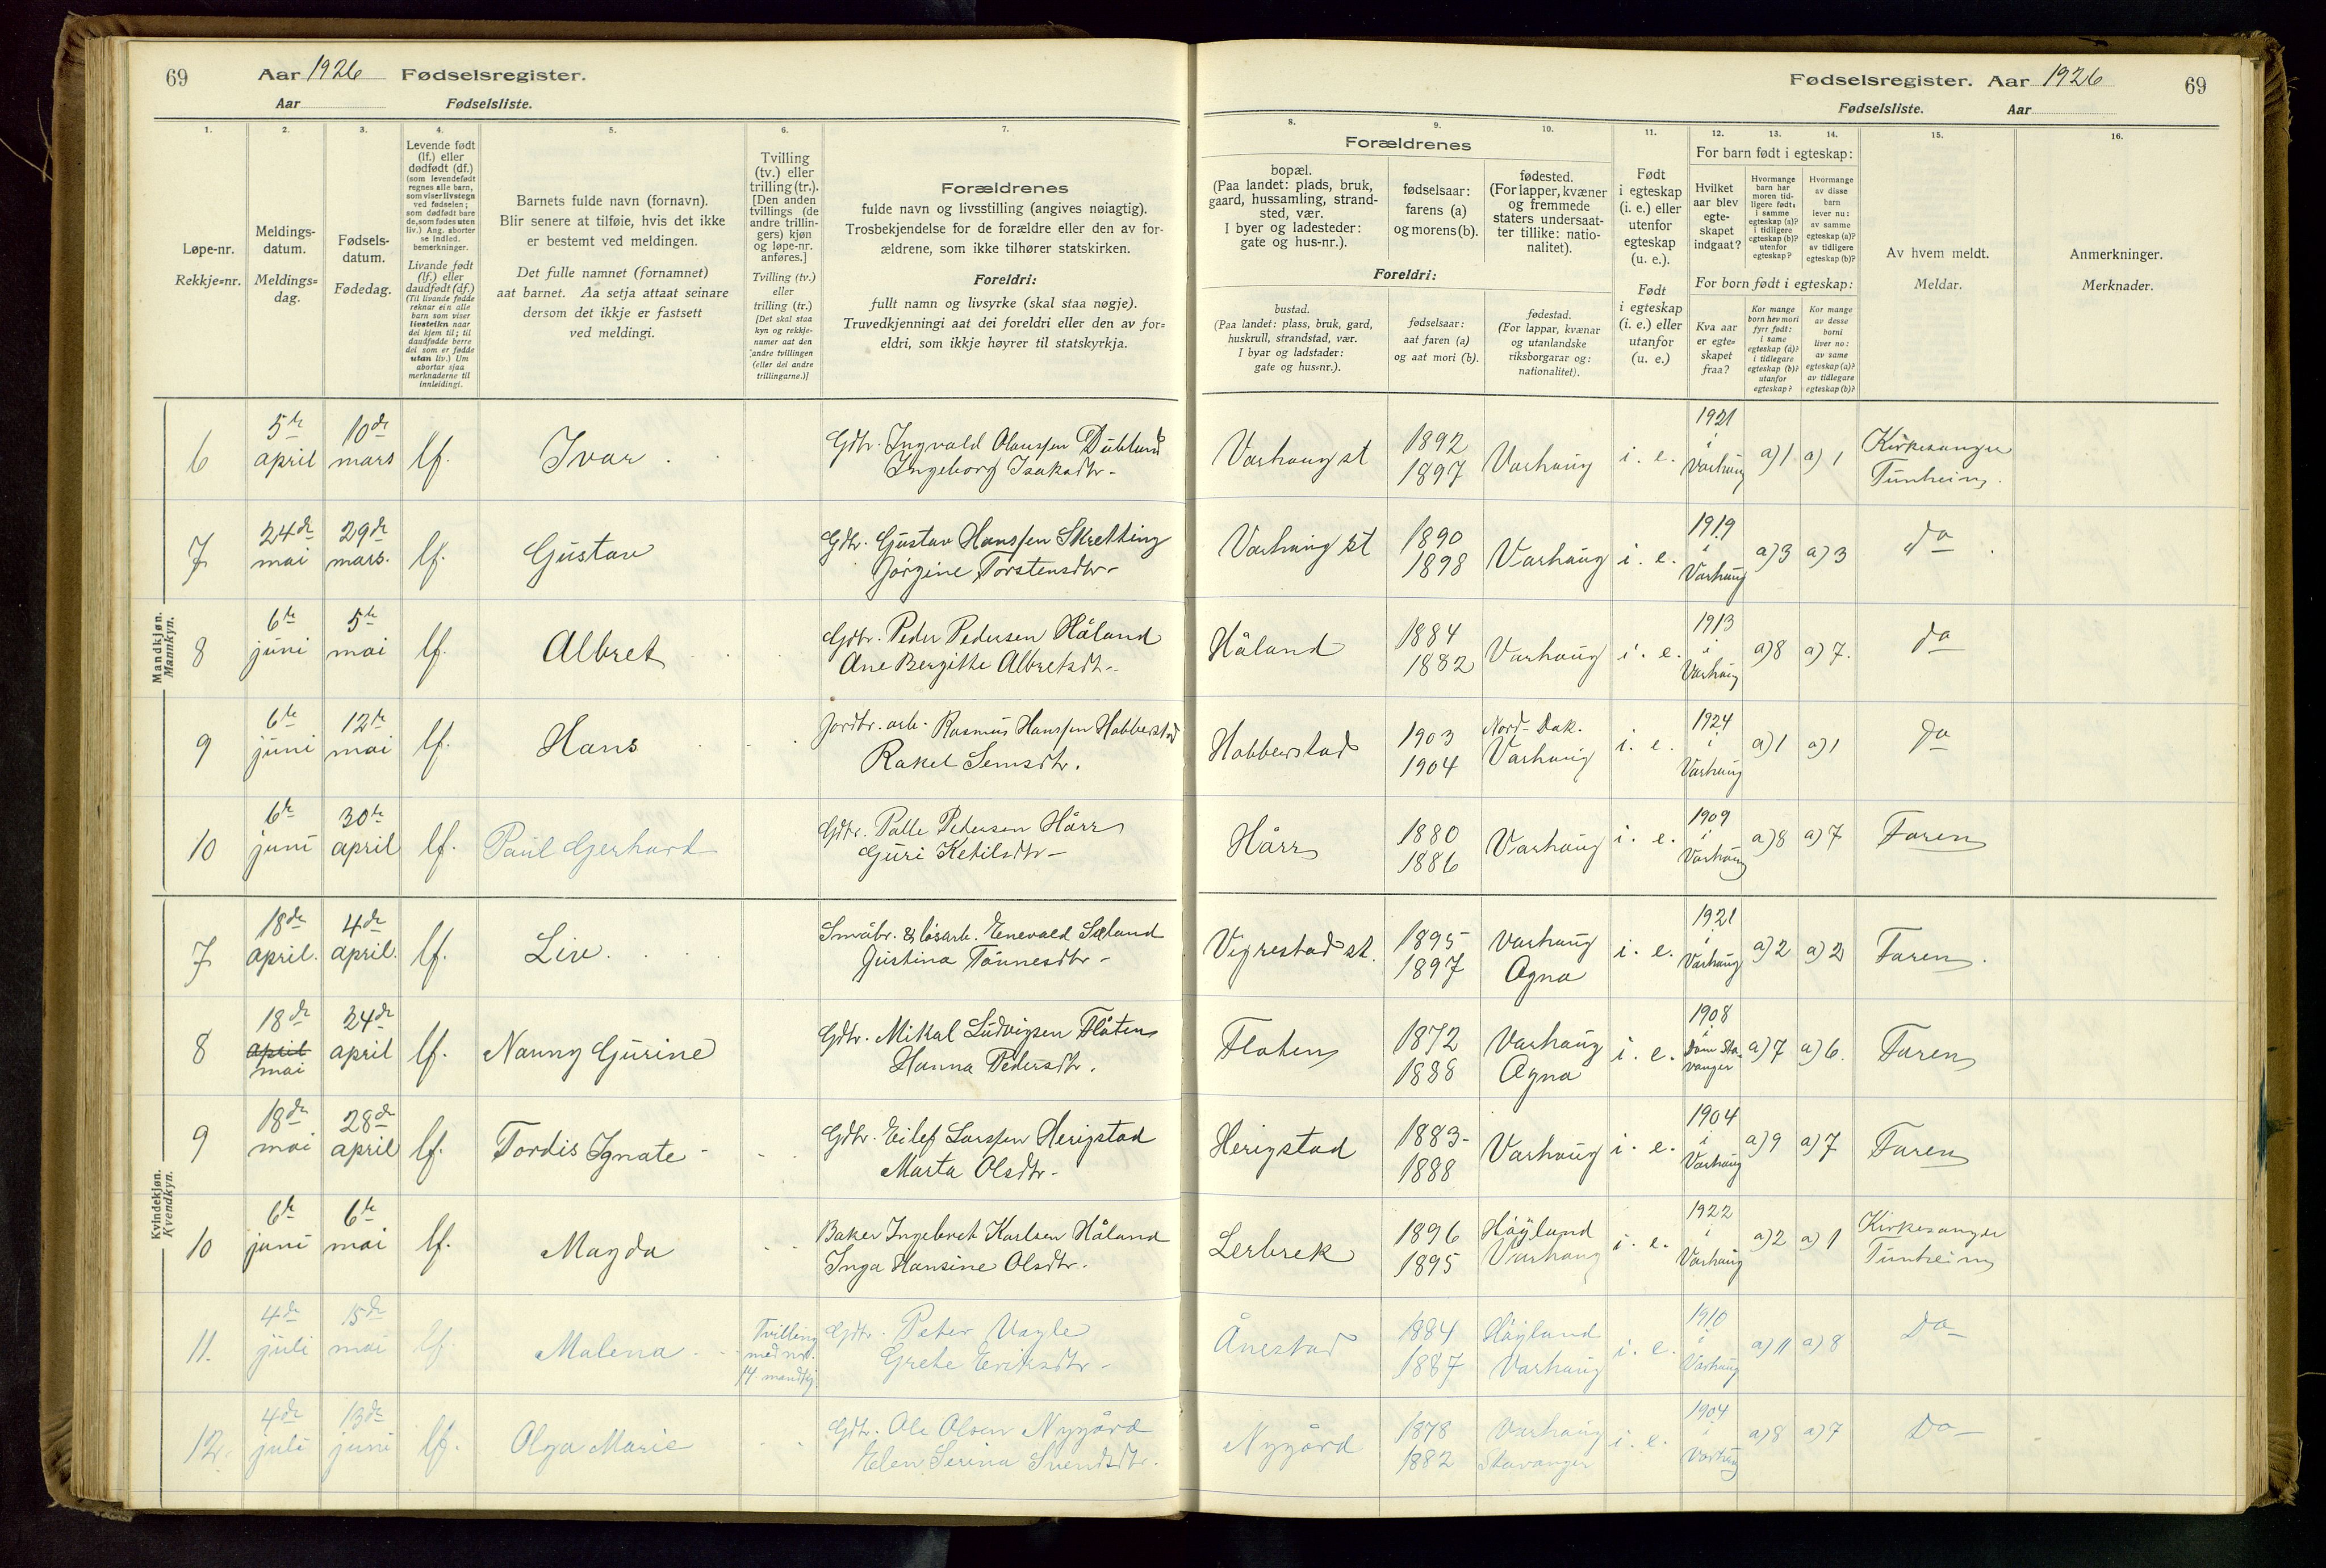 69 Aar 1926 Fødselsregister.
Aar Fødselsliste.
Fødselsregister. Aar 1926 69
Fødselsliste. Aar
1. 2. 3. 4. 5. 6. 7.
Løpe-nr.
Rekkje-nr.
Meldings-
datum.
Meldings-
dag.
Fødsels-
datum.
Fødedag.
Levende født
(lf.) eller
dødfødt (df.)
(som levendefødt
regnes alle barn,
som viser livstegn
ved fødselen;
som dødfødt bare
de, som fødes uten
liv.) Ang. aborter
se indled.
bemerkninger.
Livande født
(lf.) eller
daudfødt (df.)
(Til livande fødde
reknar ein alle
barn som viser
livsteikn naar
dei kjem til; til
daudfødde berre
dei som er fødde
utan liv.) Um
abortar sjaa
merknaderne til
innleidingi.
Barnets fulde navn (fornavn).
Blir senere at tilføie, hvis det ikke
er bestemt ved meldingen.
Det fulle namnet (fornamnet)
aat barnet. Aa setja attaat seinare
dersom det ikkje er fastsett
ved meldingi.
Tvilling
(tv.) eller
trilling (tr.).
[Den anden
tvillings (de
andre trillin-
gers) kjøn
og løpe-nr.
anføres.]
Tvilling (tv.)
eller
trilling (tr.)
[Det skal staa
kyn og rekkje-
numer aat den
andre tvillingen
(eller dei andre
trillingarne.)]
Forældrenes
fulde navn og livsstilling (angives nøiagtig).
Trosbekjendelse for de forældre eller den av for-
ældrene, som ikke tilhører statskirken.
Foreldri:
fullt namn og livsyrke (skal staa nøgje).
Truvedkjenningi aat dei foreldri eller den av for-
eldri, som ikkje høyrer til statskyrkja.
8. 9. 10. 11. 12. 13. 14. 15. 16.
Forældrenes
bopæl.
(Paa landet: plads, bruk,
gaard, hussamling, strand-
sted, vær.
I byer og ladesteder:
gate og hus-nr.).
fødselsaar:
farens (a)
og morens (b).
fødested.
(For lapper, kvæner
og fremmede
staters undersaat-
ter tillike: natio-
nalitet).
Foreldri:
bustad.
(Paa landet: plass, bruk, gard,
huskrull, strandstad, vær.
I byar og ladstader:
gate og hus-nr.).
fødselsaar:
aat faren (a)
og aat mori (b).
fødestad.
(For lappar, kvænar
og utanlandske
riksborgarar og:
nationalitet).
Født
i egteskap
(i. e.) eller
utenfor
egteskap
(u. e.).
Født
i egteskap
(i. e.) eller
utanfor
(u. e.)
For barn født i egteskap:
Hvilket
aar blev
egte-
skapet
indgaat?
Hvormange
barn har
moren tid-
ligere født:
i samme
egteskap (a)?
i tidligere
egteskap (b)?
utenfor
egteskap?
Hvormange
av disse
barn
lever nu:
av samme
egteskap (a)?
av tidligere
egteskap (b)?
For born født i egteskap:
Kva aar
er egte-
skapet
fraa?
Kor mange
born hev mori
fyrr født:
i same
egteskap (a)?
i tidlegare
egteskap (b)?
utanfor
egteskap?
Kor mange
av desse
borni
liver no:
av same
egteskap (a)?
av tidlegare
egteskap (b)?
Av hvem meldt.
Meldar.
Anmerkninger.
Merknader.
Mandkjøn.
Mannkyn.
6 5te april 10de mars lf. Ivar Gdbr. Ingvald Olaussen Dubland
Ingeborg Isaksdtr.
Varhaug st 1892 1897 Varhaug i. e. 1921 i Varhaug a) 1 a) 1 Kirkesanger Tunheim.
7 24de mai 29de mars. lf. Gustav Gdbr. Gustav Hanssen Skretting
Jorgine Torstensdtr.
Varhaug st 1890 1898 Varhaug i. e. 1919 i Varhaug a) 3 a) 3 do
8 6te juni 5te mai lf. Albret Gdbr. Peder Pedersen Håland
Ane Bergitte Albretsdt.
Håland 1884 1882 Varhaug i. e. 1913 i Varhaug a) 8 a) 7. do
9 6te juni 12te mai lf. Hans Jordbr. arb. Rasmus Hanssen Hobberstad
Rakel Semsdtr.
Hobberstad 1903 1904 Nord-Dak. Varhaug i. e. 1924 i Varhaug a) 1 a) 1 do
10 6te juni 30te april lf. Paul Gerhard Gdbr. Palle Pedersen Hårr
Guri Ketilsdtr.
Hårr 1880 1886 Varhaug i. e. 1909 i Varhaug a) 8 a) 7 Faren
Kvindekjøn.
Kvendkyn.
7 18de april. 4de april. lf. Liv. Småbr. & løsarb. Enevald Sæland
Justina Tønnesdtr.
Vigrestad st. 1895 1897 Varhaug Ogna i. e. 1921 i Varhaug a) 2 a) 2 Faren.
8 18de april mai 24de april lf. Nanny Gurine Gdbr. Mikal Ludvigsen Flåten
Hanna Pedersdtr.
Flaten 1872 1888 Varhaug Ogna i. e. 1908 i Dom Sta-vanger a) 7 a) 6. Faren
9 18de mai 28de april lf. Tordis Ignate Gdbr. Eilef Larssen Herigstad
Marta Olsdtr.
Herigstad 1883 1888 Varhaug i. e. 1904 i Varhaug a) 9 a) 7 Faren
10 6te juni 6te mai lf. Magda Baker Ingebret Karlsen Håland
Inga Hansine Olsdtr.
Lerbrek 1896 1895 Høyland Varhaug i. e. 1922 i Varhaug a) 2 a) 1 Kirkesanger Tunheim
11. 4de juli 15de mai lf. Malena Tvilling med nr. 14 mandkj. Gdbr. Peter Vagle
Grete Eriksdtr.
Ånestad 1884 1887 Høyland Varhaug i. e. 1910 i Varhaug a) 11 a) 8 Do
12. 4de juli 13de juni lf. Olga Marie Gdbr. Ole Olsen Nygård
Elen Serina Svendsdtr.
Nygård 1878 1882 Varhaug Stavanger i. e. 1904 i Varhaug a) 8 a) 7 Do